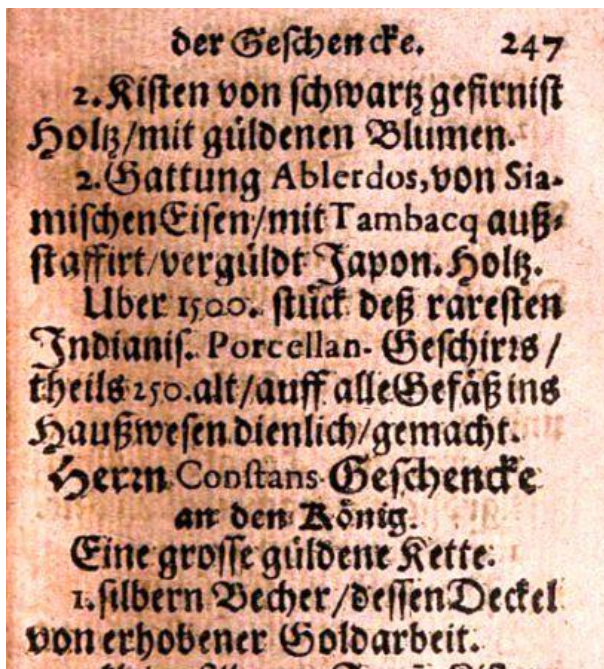 der Geſchencke. 247
2. Kiſten von ſchwartz gefirniſt
Holtz/mit güldenen Blumen.
2. Gattung Ablerdos, von Sia-
miſchen Eiſen/mit Tambacq auß-
ſtaffirt/vergüldt Japon. Holtz.
Uber 1500. ſtück deß rareſten
Indianiſ. Porcellan- Geſchirꝛs /
theils 250. alt/auff alle Gefäß ins
Haußweſen dienlich/gemacht.
Herꝛn Conſtans Geſchencke
an den König.
Eine groſſe güldene Kette.
1. ſilbern Becher/deſſen Deckel
von erhobener Goldarbeit.